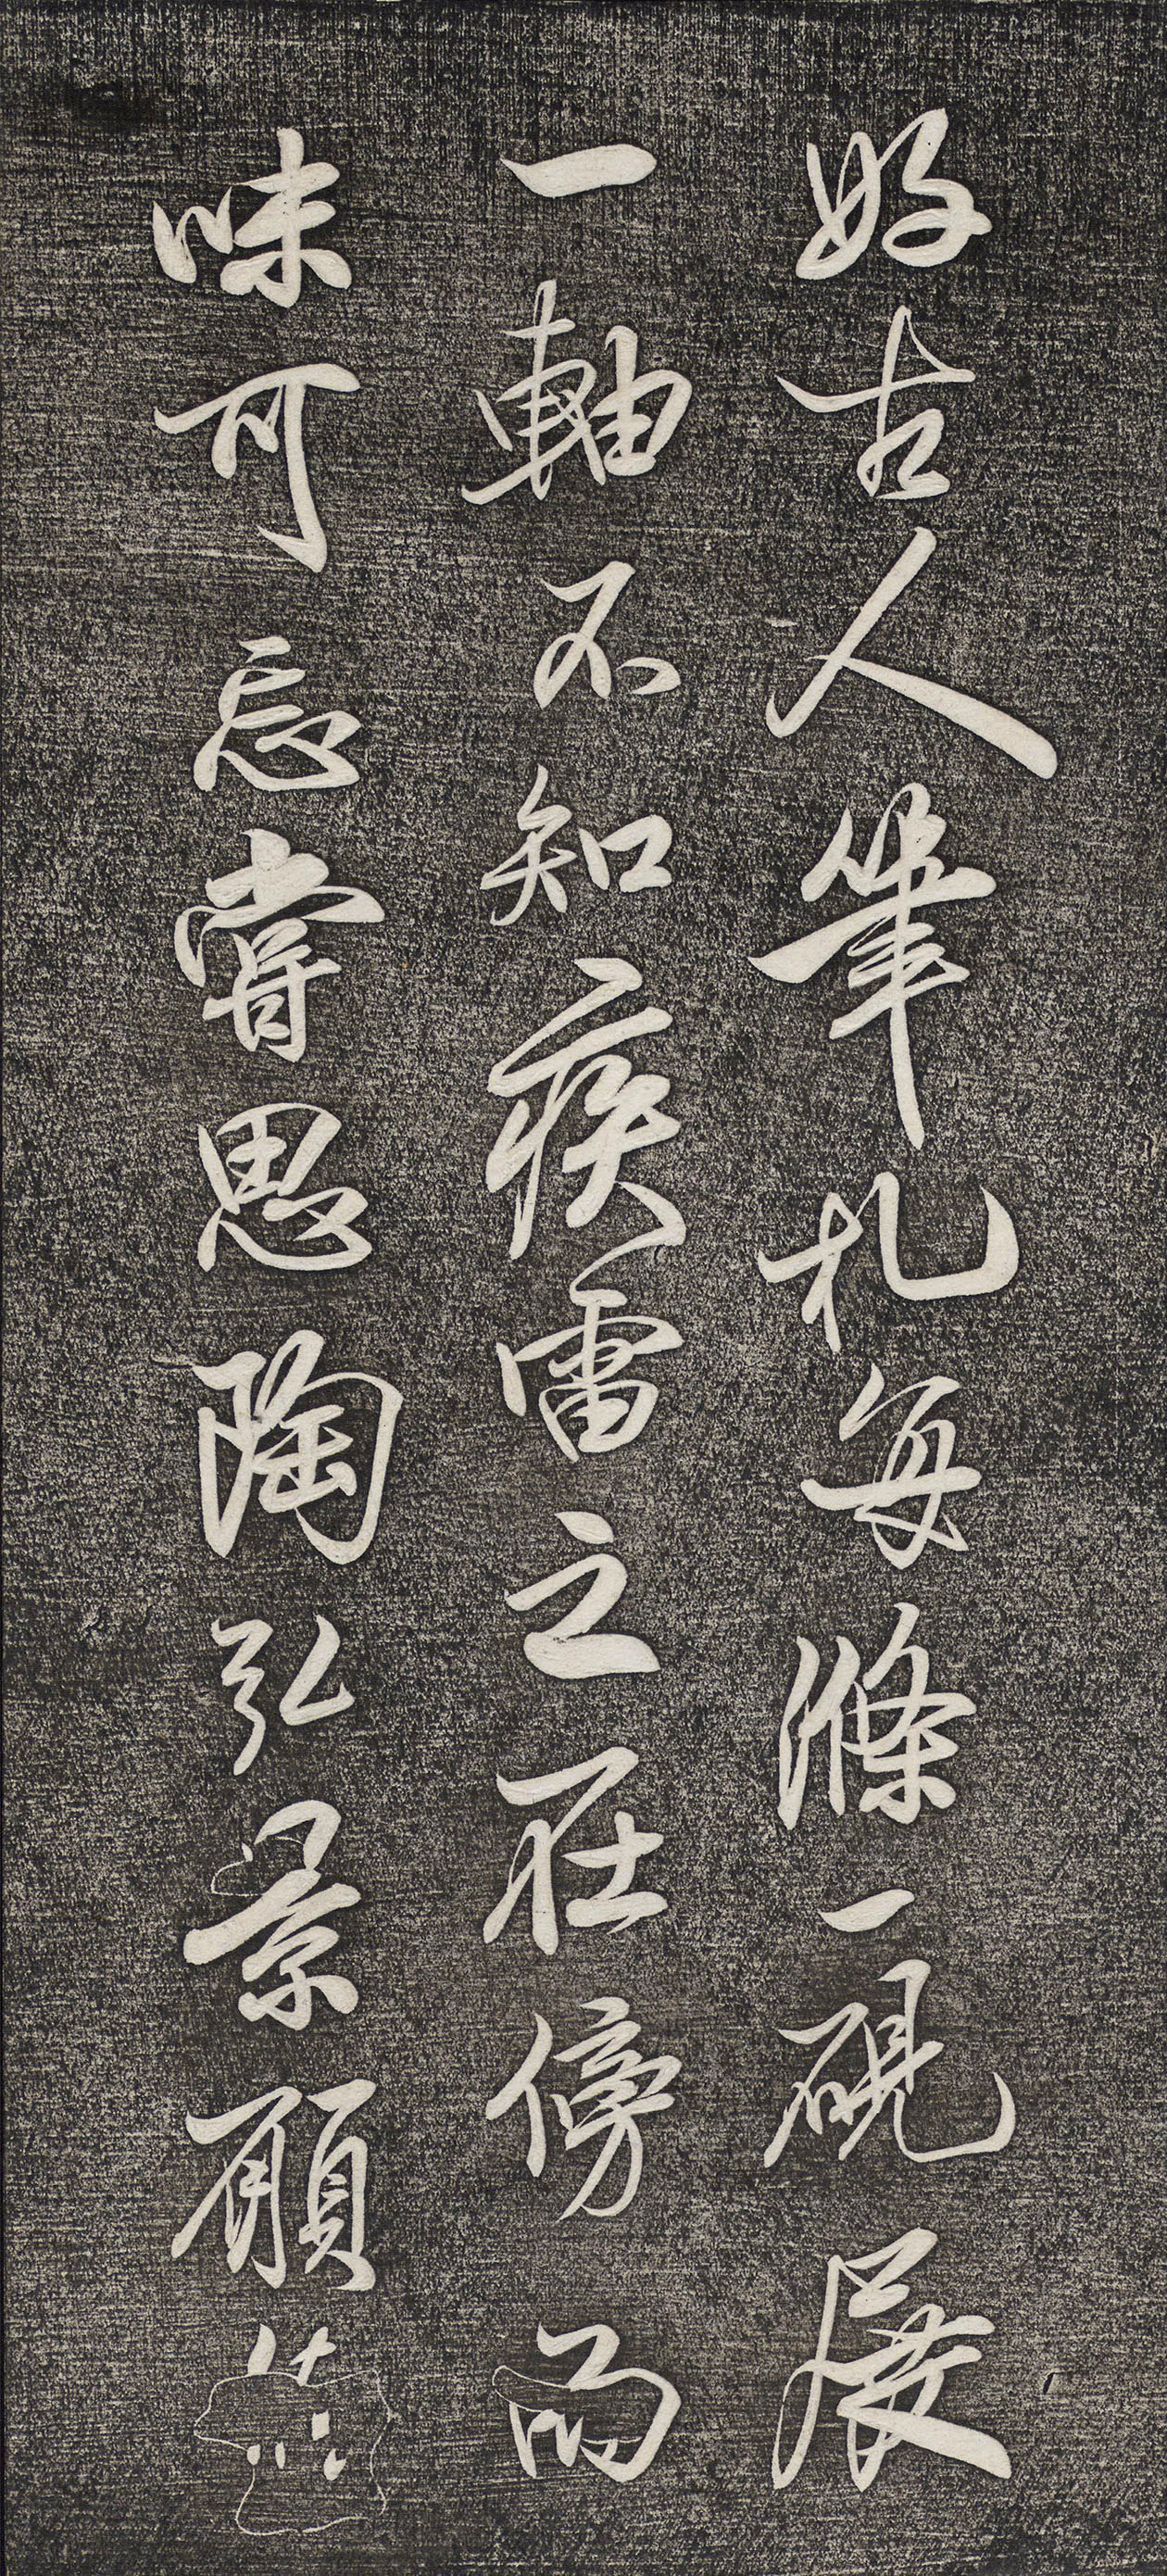 好古人筆札每滌一硯展
一軸不知疾雷之在傍而
味可忘嘗思陶弘景願